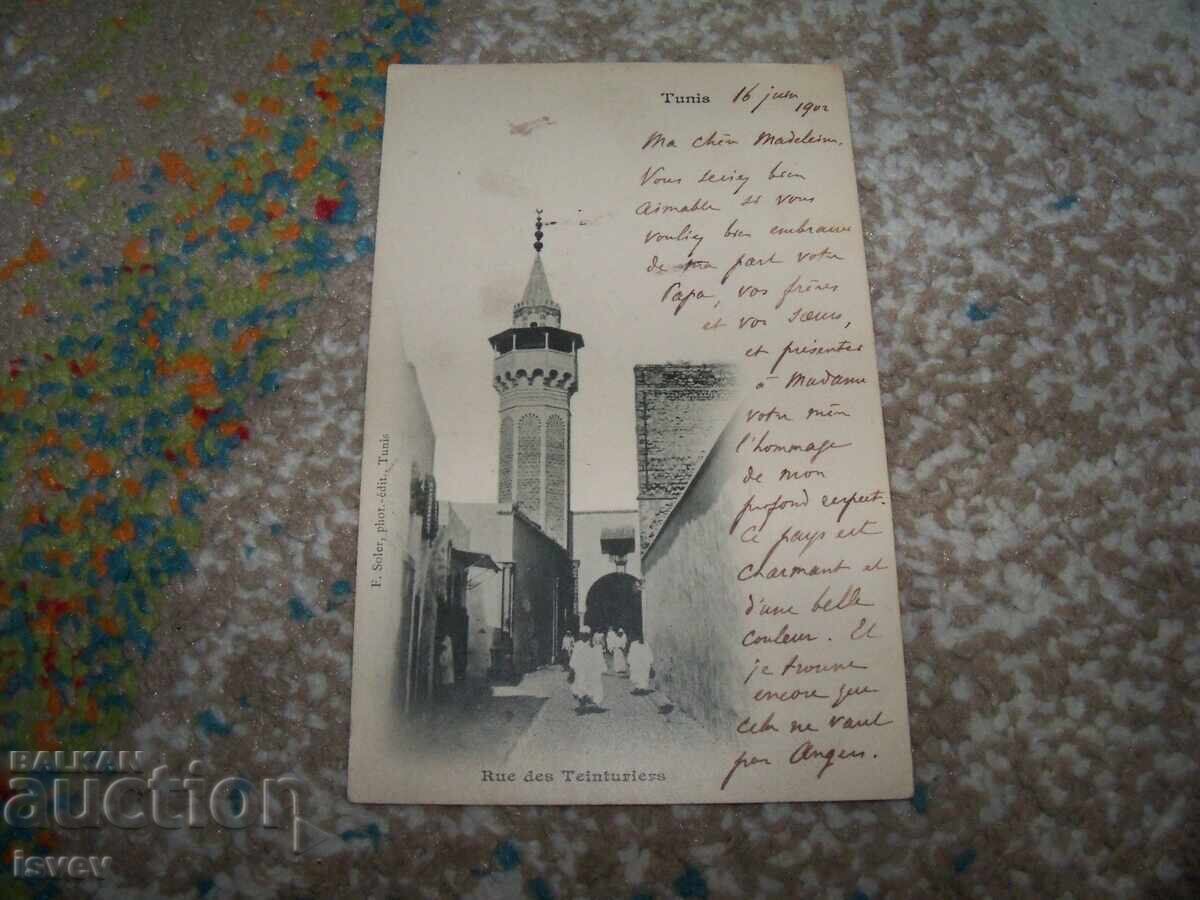 Tunis 16 juin 1902
Ma chère Madeleine,
Vous seriez bien
aimable si vous
vouliez bien embrasser
de ma part votre
Papa, vos frères
et vos sœurs,
et présenter
à Madame
votre mère
l'hommage
de mon
profond respect.
Ce pays est
charmant et
d'une belle
couleur. Et
je trouve
encore que
cela ne vaut
pas Angers.
E. Soler, phot.-édit., Tunis
Rue des Teinturiers
BALKAN
auction
isvev